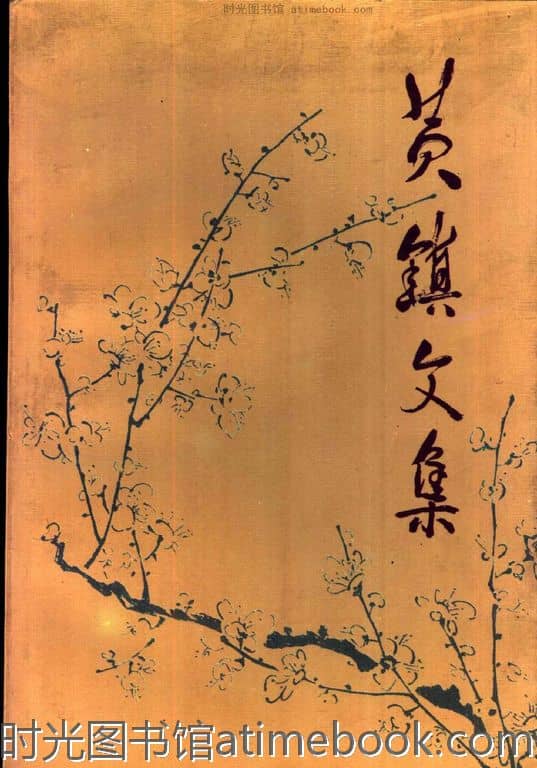 时光图书馆 atimebook.com
黄镇文集
时光图书馆atimebook.com